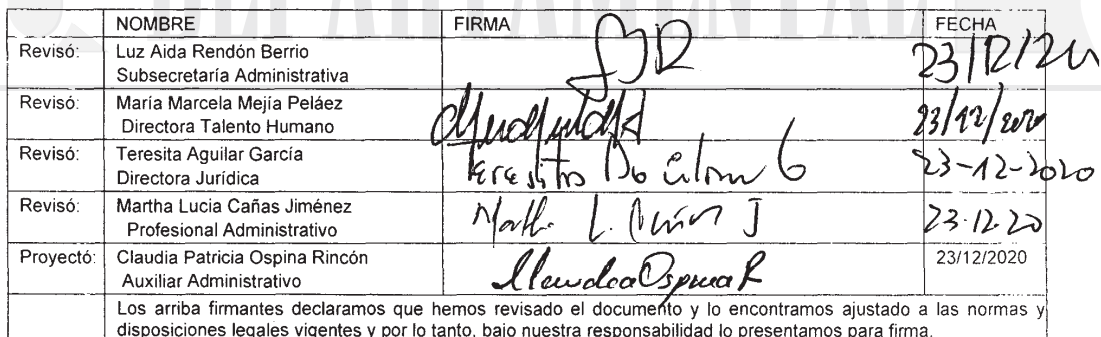 DEPARTAMENTAL
NOMBRE FIRMA FECHA
Revisó: Luz Aida Rendón Berrio
Subsecretaría Administrativa 23/12/20
Revisó: María Marcela Mejía Peláez
Directora Talento Humano 23/12/2020
Revisó: Teresita Aguilar García Teresita
Directora Jurídica 23-12-2020
Revisó: Martha Lucia Cañas Jiménez Martha L. Cañas J
Profesional Administrativo 23.12.20
Proyectó: Claudia Patricia Ospina Rincón 23/12/2020
Auxiliar Administrativo Claudia Ospina R
Los arriba firmantes declaramos que hemos revisado el documento y lo encontramos ajustado a las normas y
disposiciones legales vigentes y por lo tanto, bajo nuestra responsabilidad lo presentamos para firma.